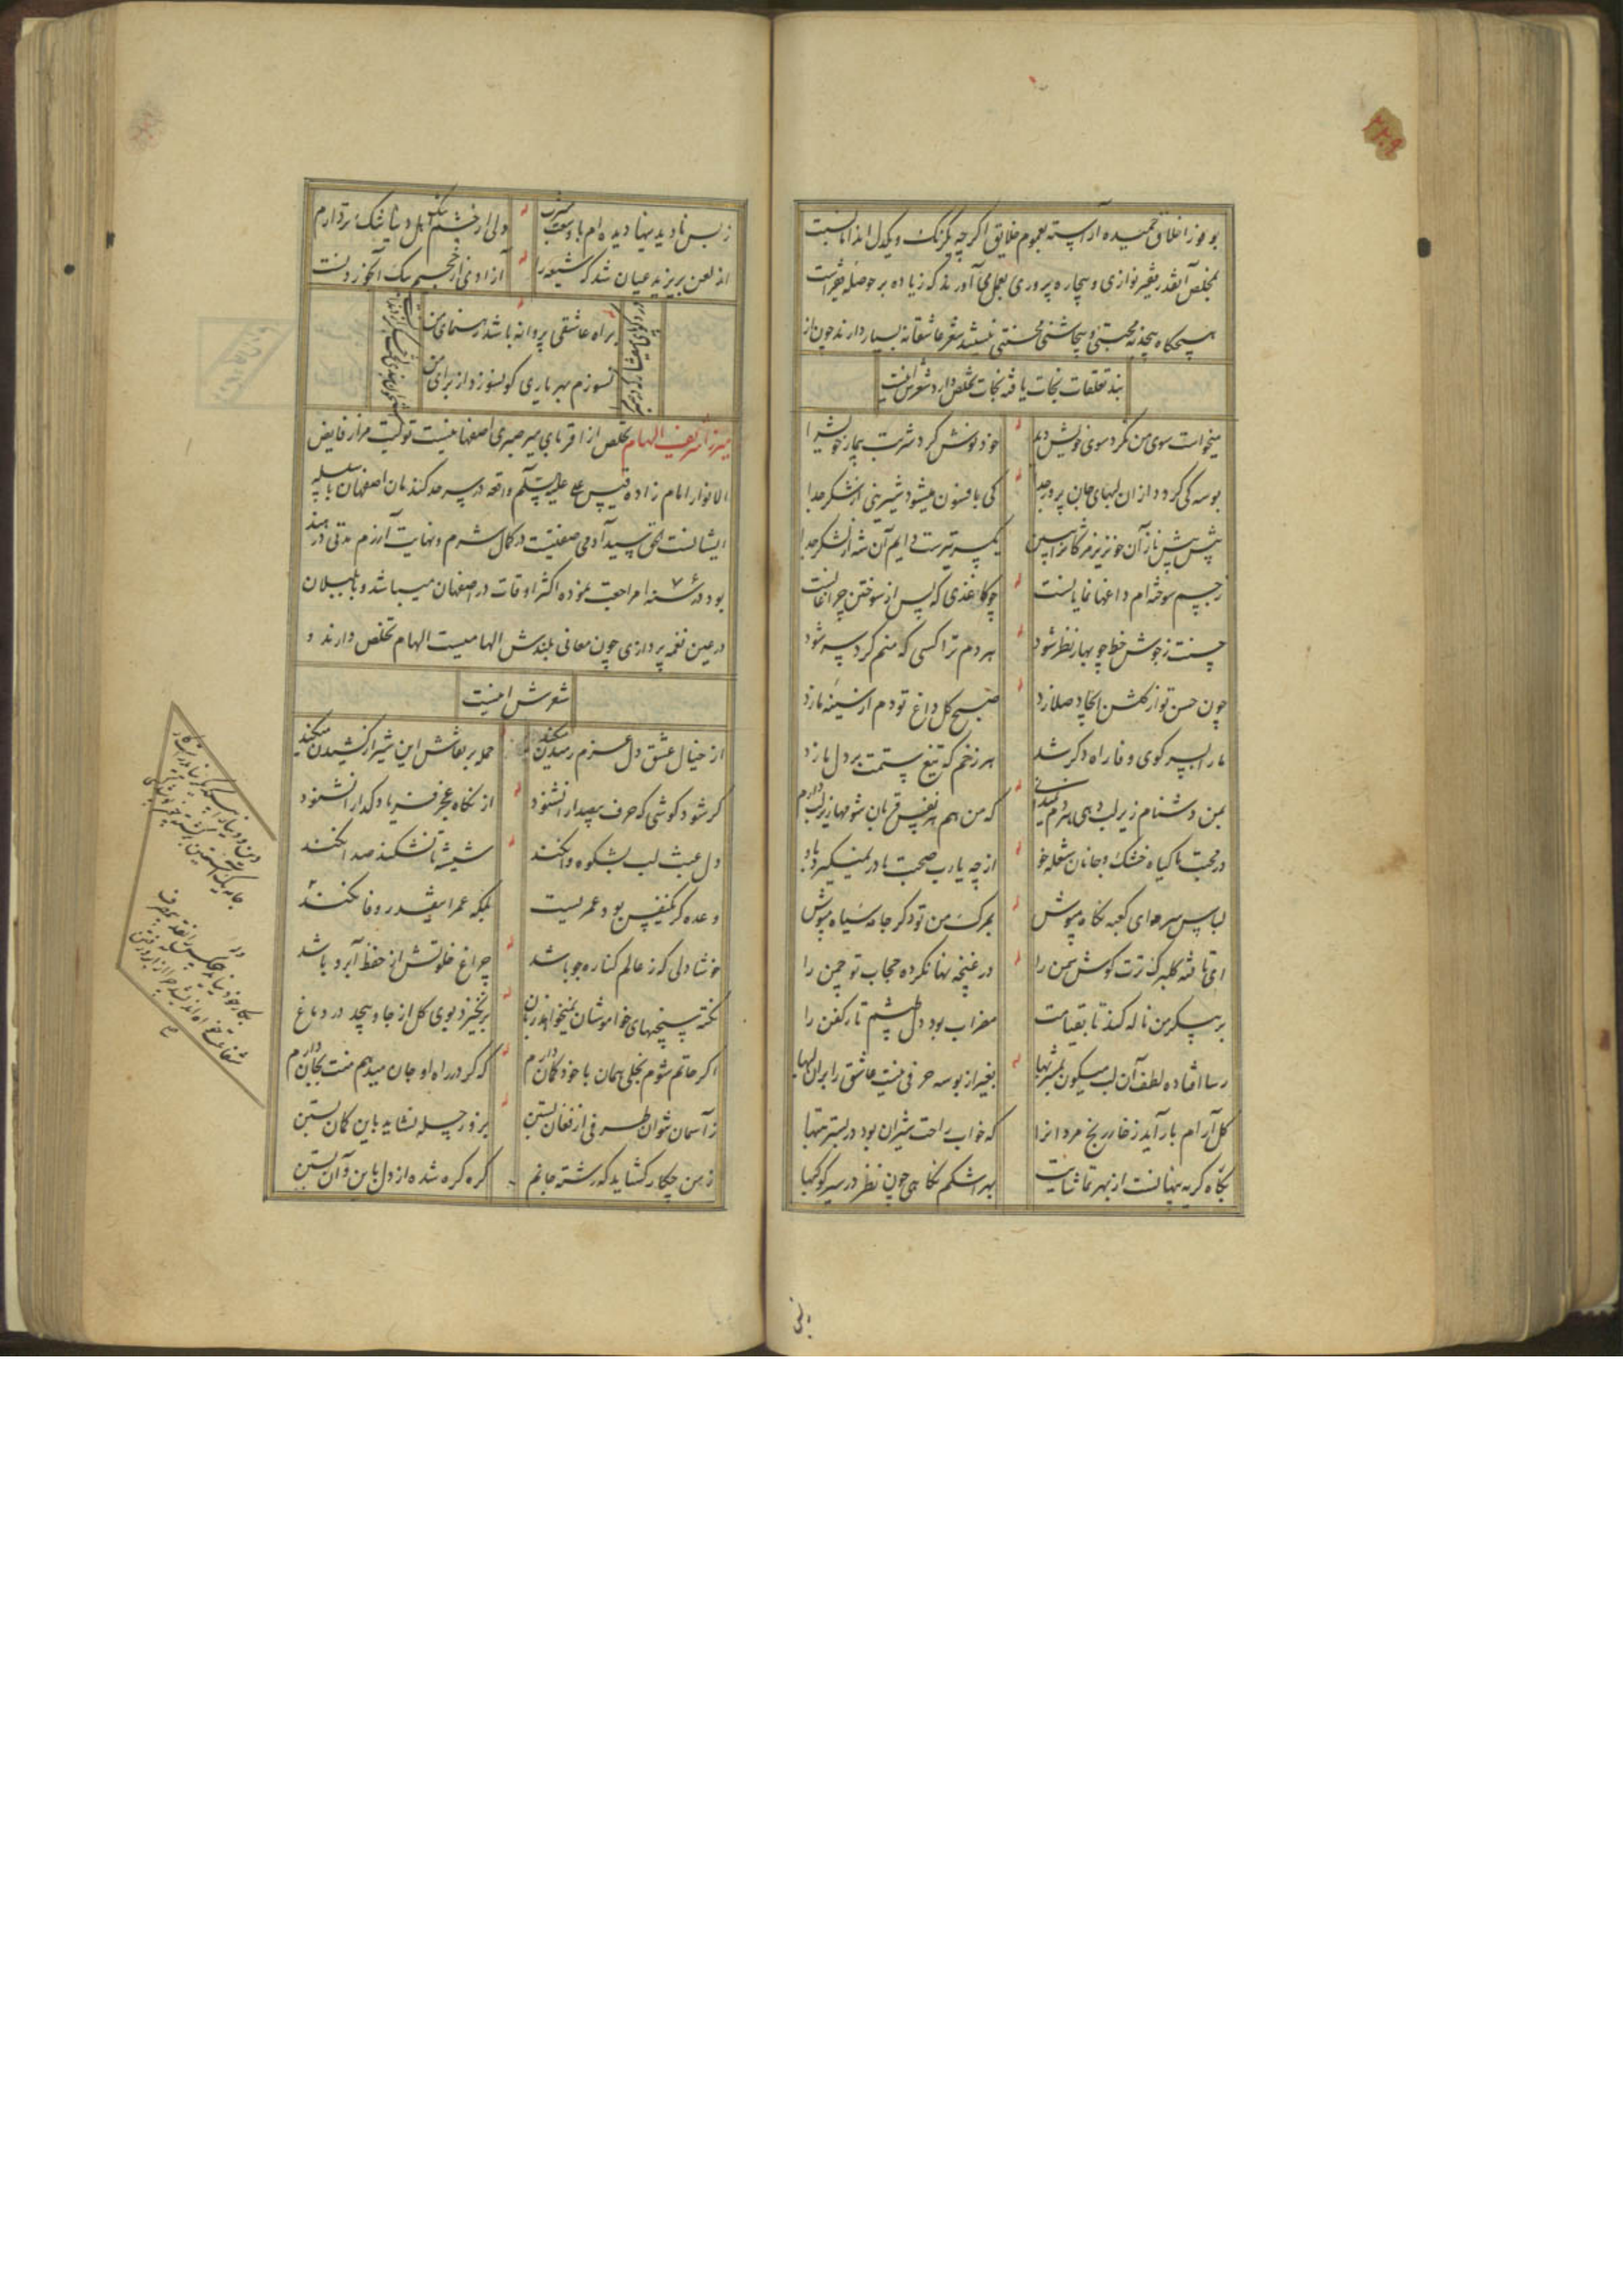 بوفور اخلاق حمیده آراسته بعموم خلایق اگرچه یکرنگ و یکدل اند اما نسبت
بمخلص آنقدر فقیر نوازی و بیچاره پروری بعمل می آورند که زیاده بر حوصله فقیر است
هیچگاه بیچدنه محبتی و بیچاشنی محنتی نیستند شعر عاشقانه بسیار دارند چون از
بند تعلقات نجات یافته نجات تخلص دارد شعرش اینست
میخواست سوی من نگرد سوی خویش دید
خود نوش کرد شربت بیمار خویش را
بوسه کی گردد از ان لبهای جان پرور جدا
کی بافسون میشود شیرینی از شکر جدا
پیش پیش ناز آن خونریز مژگانرا ببین
یکسر تیرست دایم آن شه از لشکر جدا
ز جسم سوخته ام داغها نمایانست
چو کاغذی که پس از سوختن چراغانست
حسنت ز جوش خط چو بهار نظر شود
هر دم ترا کسی که منم گرد سر شود
چون حسن تو از گلشن ایجاد صلا زد
صبح گل داغ تو دم از سینهٔ ما زد
ما را بسر کوی وفا راه دگر شد
هر زخم که تیغ ستمت بر دل ما زد
بمن دشنام زیر لب دهی هر دم نمیدانی
که من هم هر نفس قربان شومها زیر لب دارم
در محبت ما گیاه خشک و جانان شعله خو
از چه یارب صحبت ما در نمیگیرد باو
لباس سر هوای کعبه نگاه مپوش
بمرگ من تو دگر جامهٔ سیاه مپوش
ای تافته گلبرگ ترت گوش سمن را
در غنچه نهان کرده حجاب تو چمن را
بر پیکر من ناله کند تا بقیامت
مضراب بود دل طپشم تار کفن را
رسا افتاده لطف آن لب میگون بمشربها
بغیر از بوسه حرفی نیست عاشق را بر آن لبها
گل آرام بار آید ز خار رنج مردانرا
که خواب راحت شیران بود در بستر تبها
نگاه گریه پنهانست از بهر تماشایت
بهر اشکم نگاهی چون نظر در سیر کوکبها
ز بس نادیدنیها دیده ام با وسعت مشرب
ولی از چشم تنگ اهل دنیا شکر تر دارم
از لعن بر یزید عیان شد که شیعه را
آزادی از جحیم سگ آنکو زد نست
براه عاشقی پروانه باشد رهنمای من
نسوزم بهر یاری کو نسوزد از برای من
میرزا شریف الهام تخلص از اقربای میر صبری اصفهانیست تولیت مزار فایض
الانوار امام زاده قیس علی علیه السلم واقعه در سرحد کندمان اصفهان با سلسله
ایشانست الحق سید آدمی صفتیست در کمال شرم و نهایت آزرم مدتی در هند
بود در سنه ۷۶ مراجعت نموده اکثر اوقات در اصفهان میباشد و با بلبلان
در عین نغمه پردازی چون معانی بلندش الهامیست الهام تخلص دارند و
شعرش اینست
از خیال عشق دل عزم رمیدن میکند
حمله بر نقاش این شیر از کشیدن میکند
کر شود گوشی که حرف بیصدا را نشنود
از نگاه عجز فریاد گدا را نشنود
دل عبث لب بشکوه وا نکند
شیشه تا نشکند صدا نکند
وعده گر یکنفس بود عمریست
بلکه عمر اینقدر وفا نکند
خوشا دلی که ز عالم کناره جو باشد
چراغ خلوتش از حفظ آبرو باشد
نکته سنجیهای خاموشان نمیخواهد زبان
بر نخیزد بوی گل از جا و پیچد در دماغ
اگر حاتم شوم بخلی همان با خود گمان دارم
که گر در راه او جان میدهم منت بجان دارم
ز آسمان نتوان طرفی از فغان بستن
بزور چله نشاید باین کمان بستن
ز من چکار گشاید که رشته جانم
گره گره شده از دل باین و آن بستن